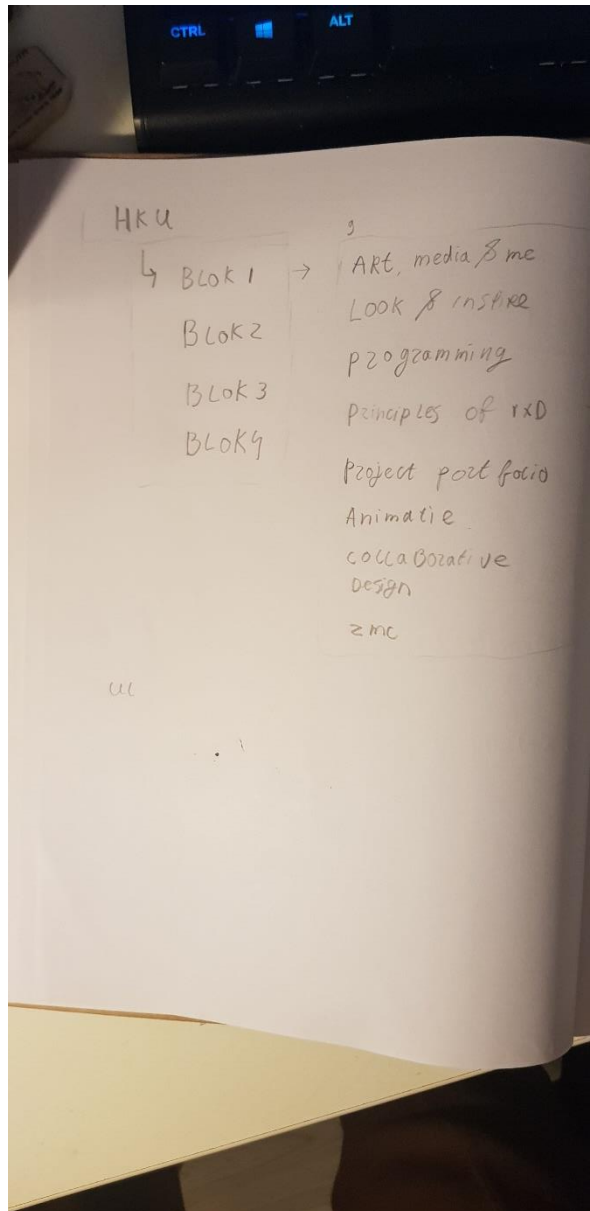 CTRL
ALT
HKU
↳ BLOK 1 →
BLOK 2
BLOK 3
BLOK 4
ARt, media & me
LOOK & inspire
programming
principles of IxD
Project portfolio
Animatie
collaborative
Design
zmc